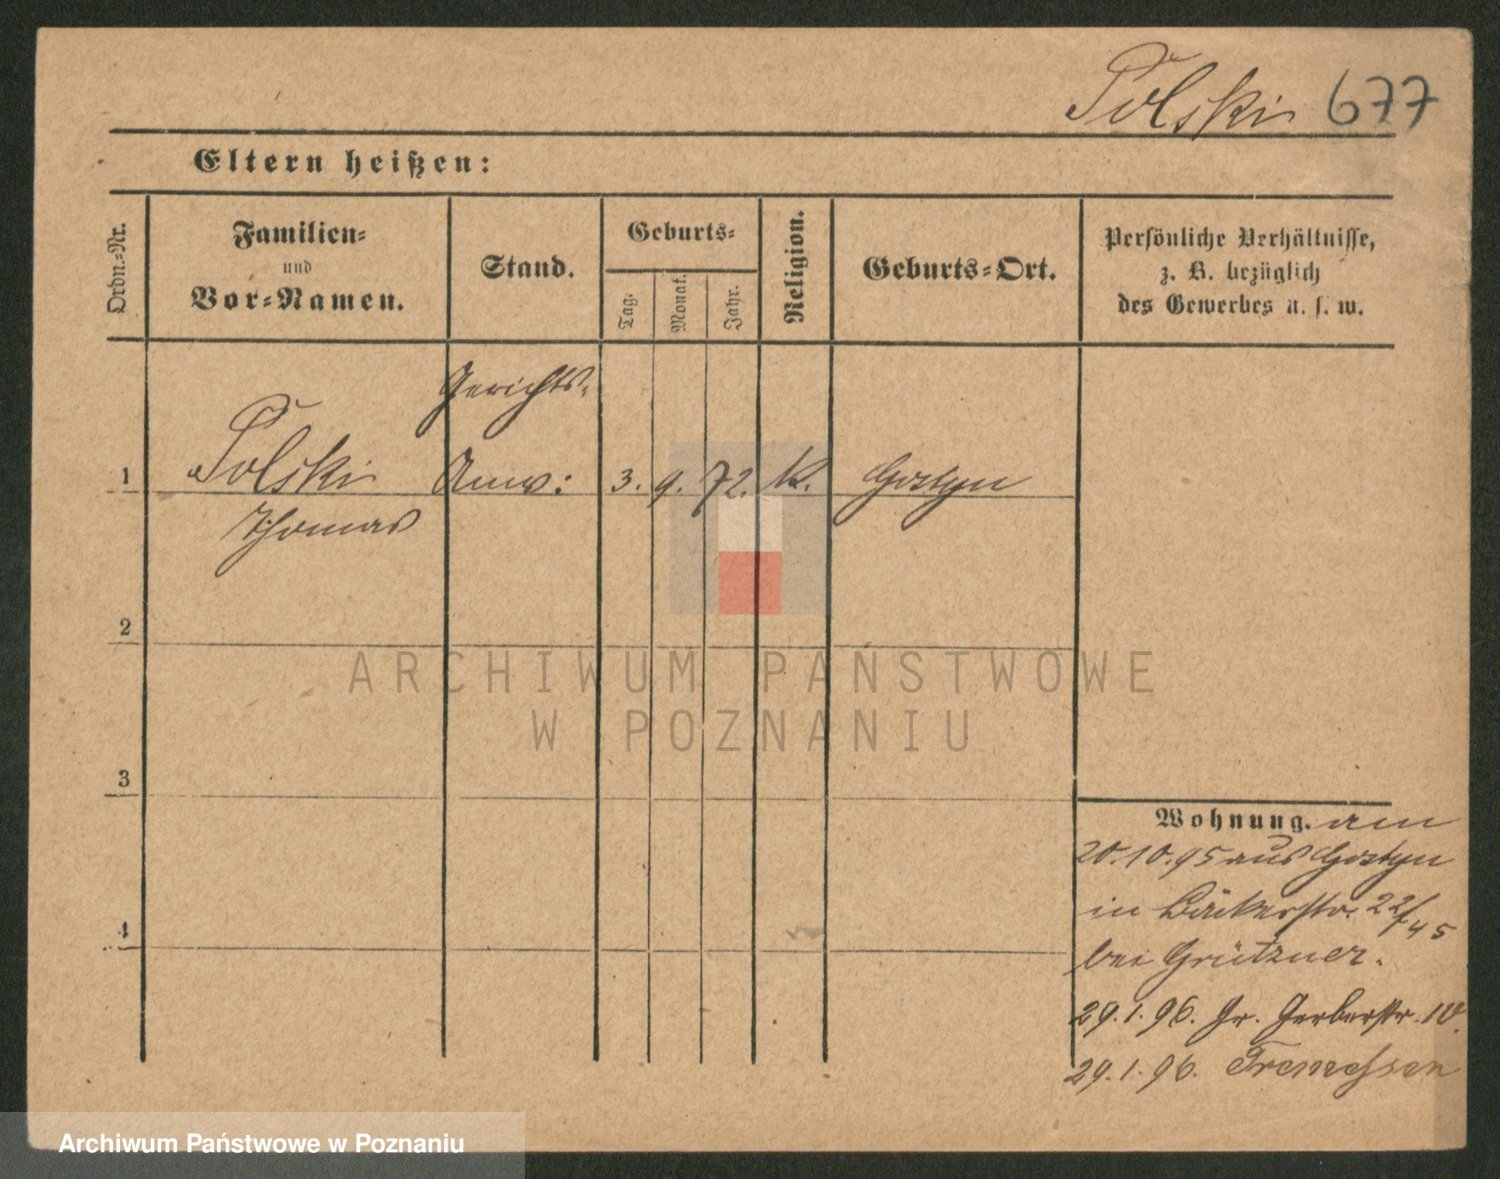 Polski 677
Eltern heißen:
Ordn.-Nr.
Familien-
und
Vor-Namen.
Stand.
Geburts-
Tag.
Monat.
Jahr.
Religion.
Geburts-Ort.
Persönliche Verhältnisse,
z. B. bezüglich
des Gewerbes u. s. w.
Gerichts-
1 Polski Anw: 3. 9. 72. k. Gostyn
Thomas
2
3
4
Wohnung. am
20.10.95 aus Gostyn
in Bäckerstr. 22/
45
bei Grützner.
29.1.96. Gr. Gerberstr. 10.
29.1.96. Tremessen
ARCHIWUM PAŃSTWOWE
W POZNANIU
Archiwum Państwowe w Poznaniu